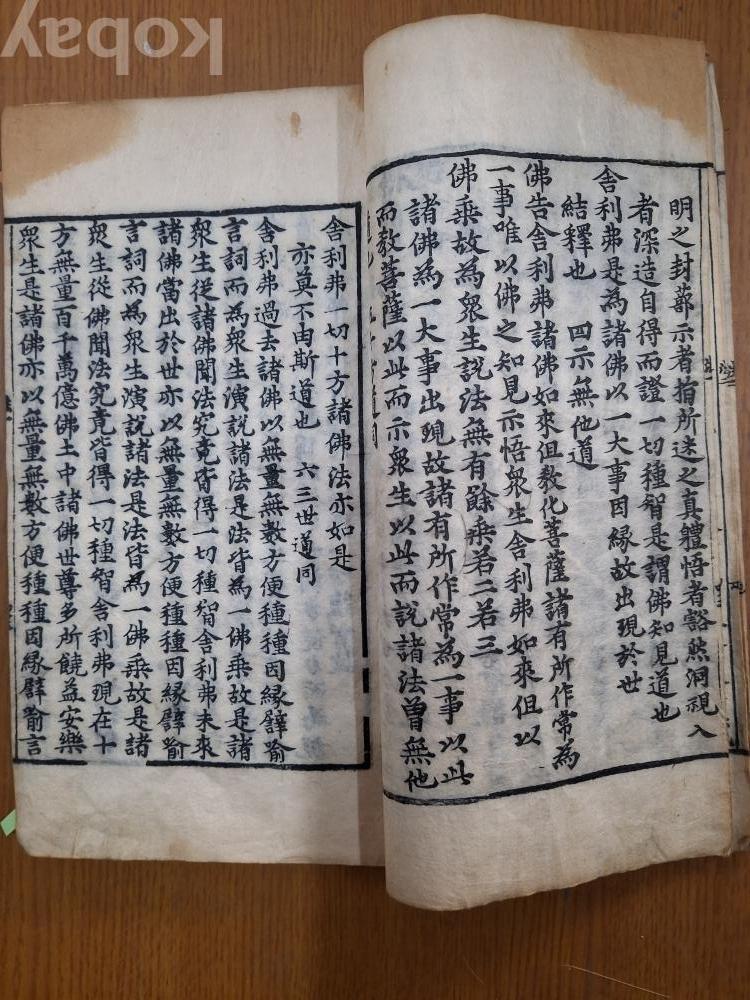 kobay
明之封蔀示者指所迷之真體悟者豁然洞視入
者深造自得而證一切種智是謂佛知見道也
舍利弗是為諸佛以一大事因緣故出現於世
結釋也 四示無他道
佛告舍利弗諸佛如來但教化菩薩諸有所作常為
一事唯以佛之知見示悟眾生舍利弗如來但以一
佛乘故為眾生說法無有餘乘若二若三
諸佛為一大事出現故諸有所作常為一事以此
而教菩薩以此而示眾生以此而說諸法曾無他
道
舍利弗一切十方諸佛法亦如是
亦莫不由斯道也 六三世道同
舍利弗過去諸佛以無量無數方便種種因緣譬喻
言詞而為眾生演說諸法是法皆為一佛乘故是諸
眾生從諸佛聞法究竟皆得一切種智舍利弗未來
諸佛當出於世亦以無量無數方便種種因緣譬喻
言詞而為眾生演說諸法是法皆為一佛乘故是諸
眾生從佛聞法究竟皆得一切種智舍利弗現在十
方無量百千萬億佛土中諸佛世尊多所饒益安樂
眾生是諸佛亦以無量無數方便種種因緣譬喻言